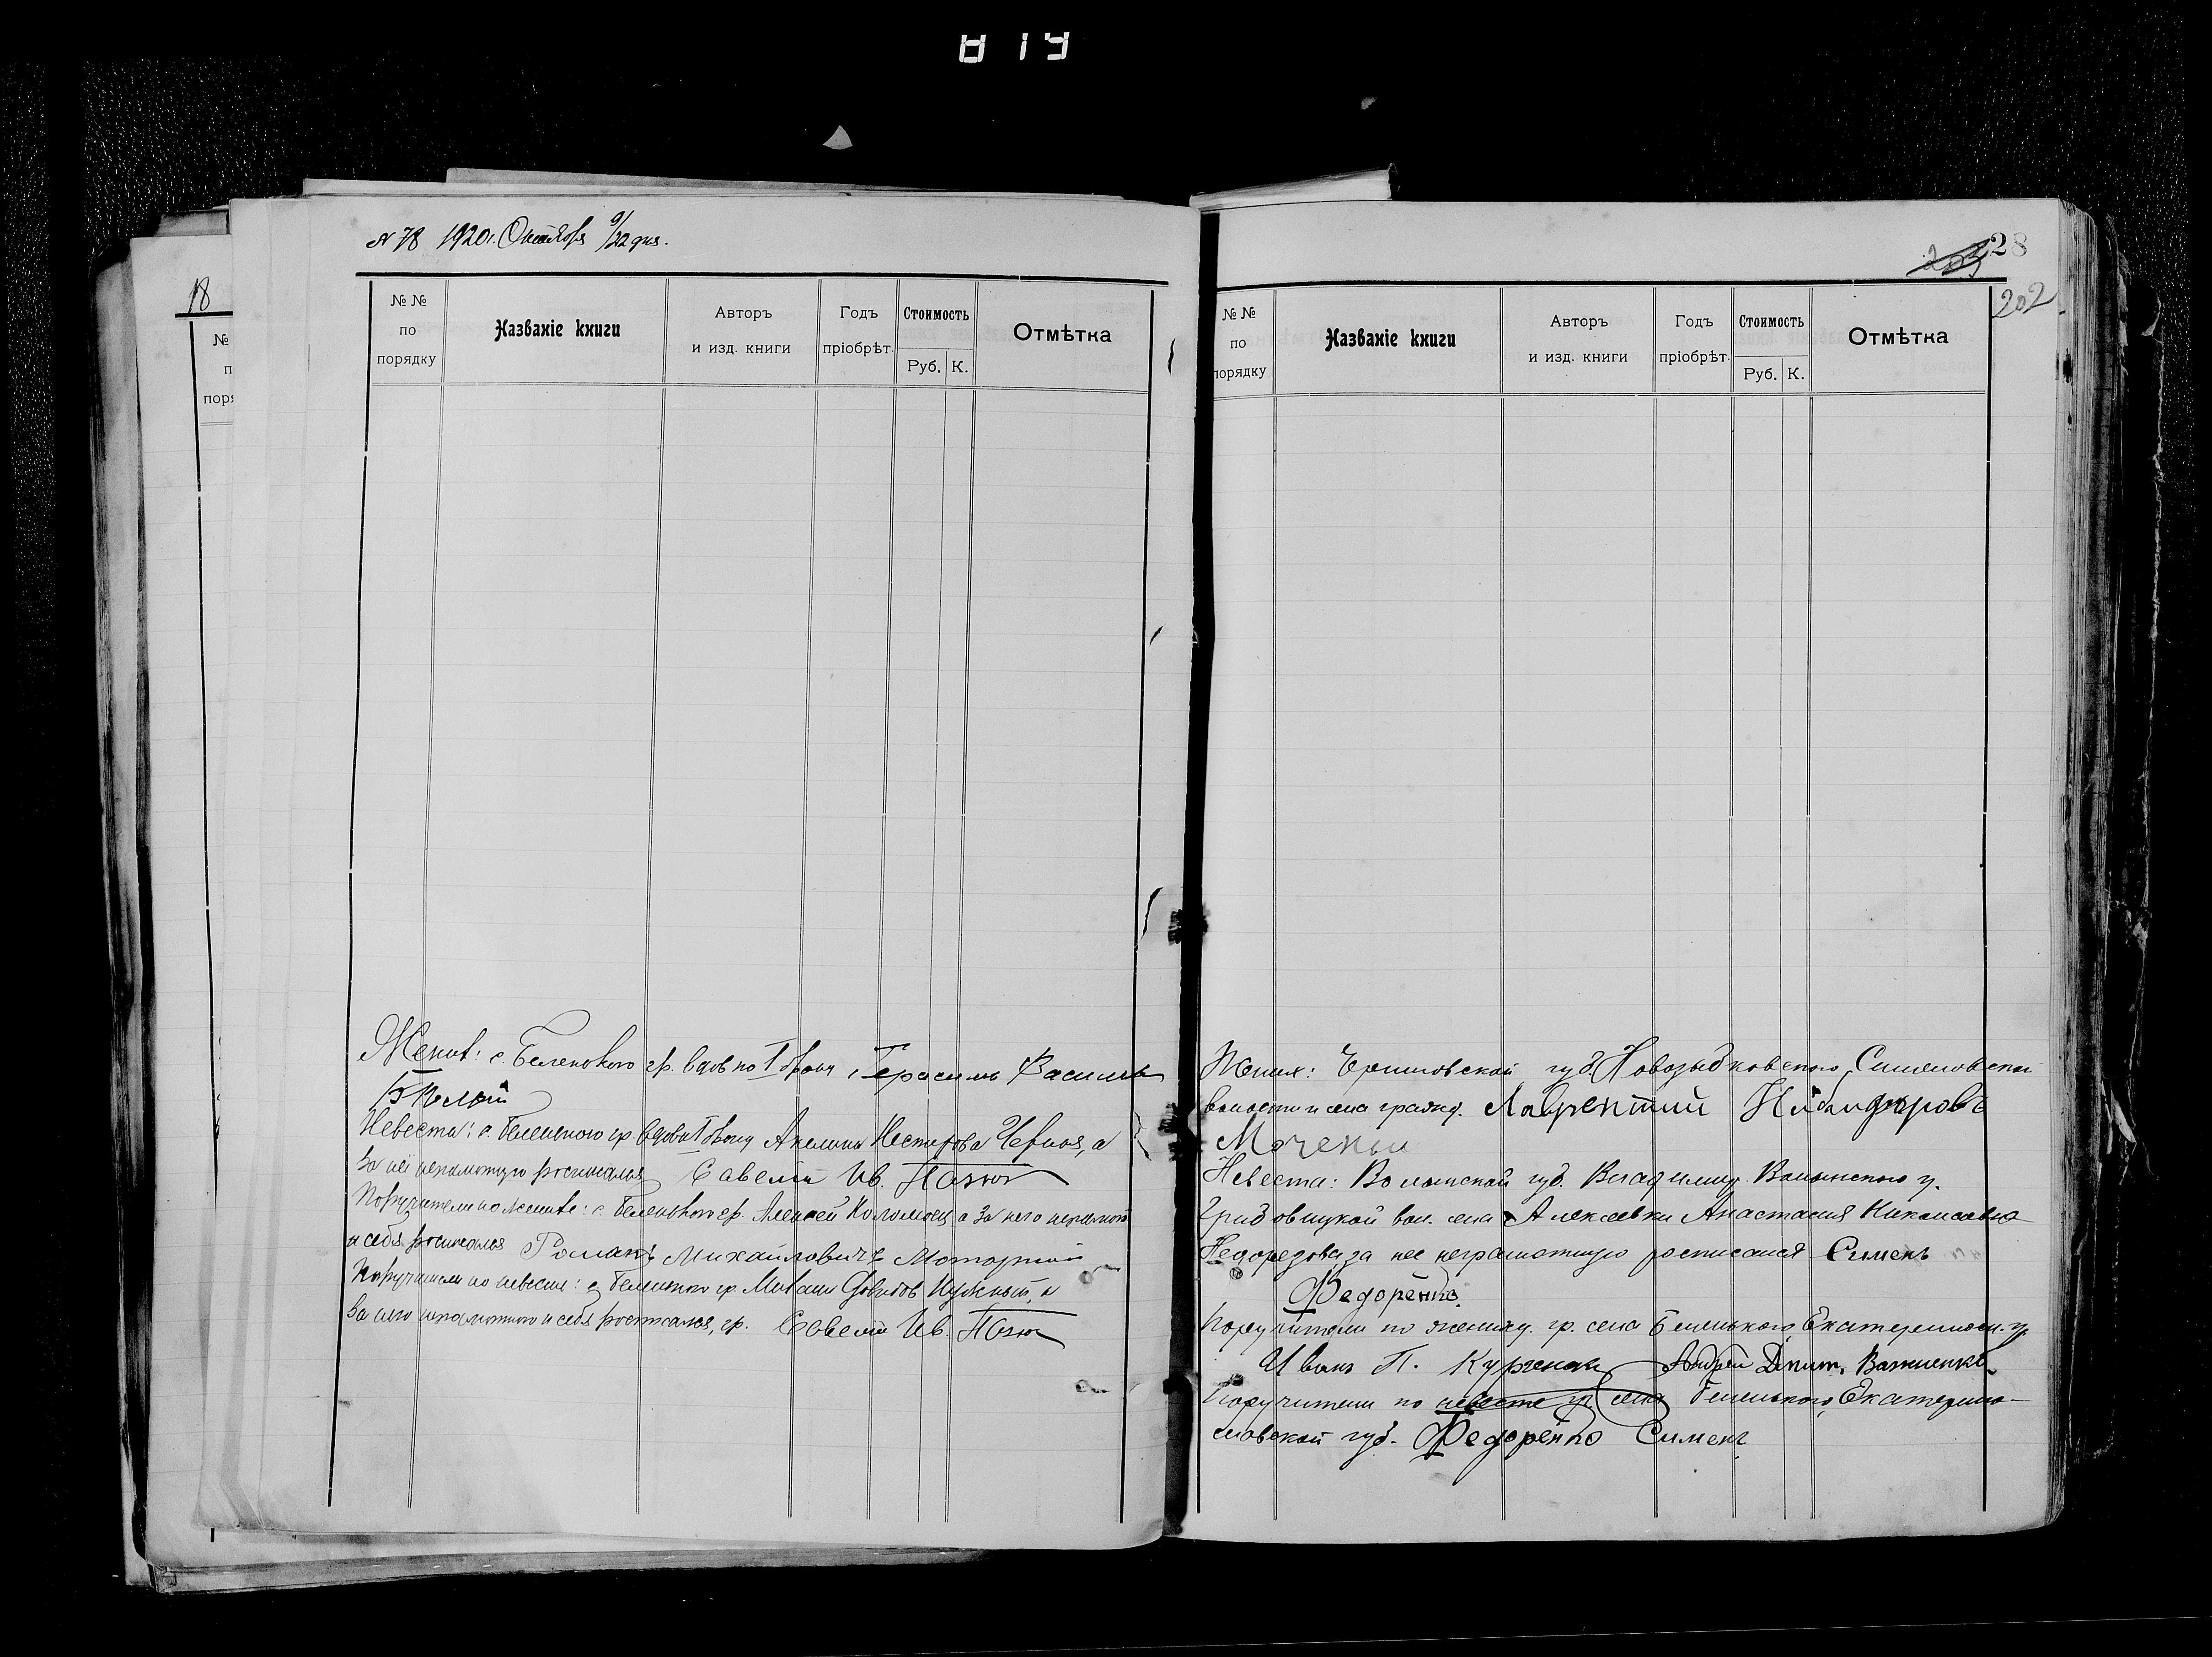 819
N 78 1920 г. Октября 9/22 дня.
№ №
по
порядку
Названіе книги
Авторъ
и изд. книги
Годъ
пріобрѣт.
Стоимость
Руб. К.
Отмѣтка
Жених: с. Беленького гр. вдов по I браку, Герасимъ Василь
Белый
Невеста: с. Беленького гр. вдова I браку Акилина Нестерова Черная, а
за неё неграмотную росписался Савелий Ив. Назюк
Поручители по жениху: с. Беленького гр. Алексей Коломоец а за него неграмотн
и себя росписался Романъ Михайловичъ Моторный
Поручители по невесте: с. Беленького гр. Давидов Нужный, а
за него неграмотного и себя росписался, гр. Савелий Ив. Назюк
18
№
п
поря
28
202
№ №
по
порядку
Названіе книги
Авторъ
и изд. книги
Годъ
пріобрѣт.
Стоимость
Руб. К.
Отмѣтка
Жених: Черниговской губ. Новозыбковского,
волости и села гражд. Лаврентий Никифоровъ
Невеста: Волынской губ. Владимир Волынского у.
вол. села Алексеевки Анастасия
за нее неграмотную росписался Сименъ
Федоренко.
Поручители по жениху. гр. села Беленького, Екатеринос. г.
Иванъ П. Андрей Дмит.
Поручители по невесте гр. села Беленького, Екатерино-
славской губ. Федоренко Сименъ